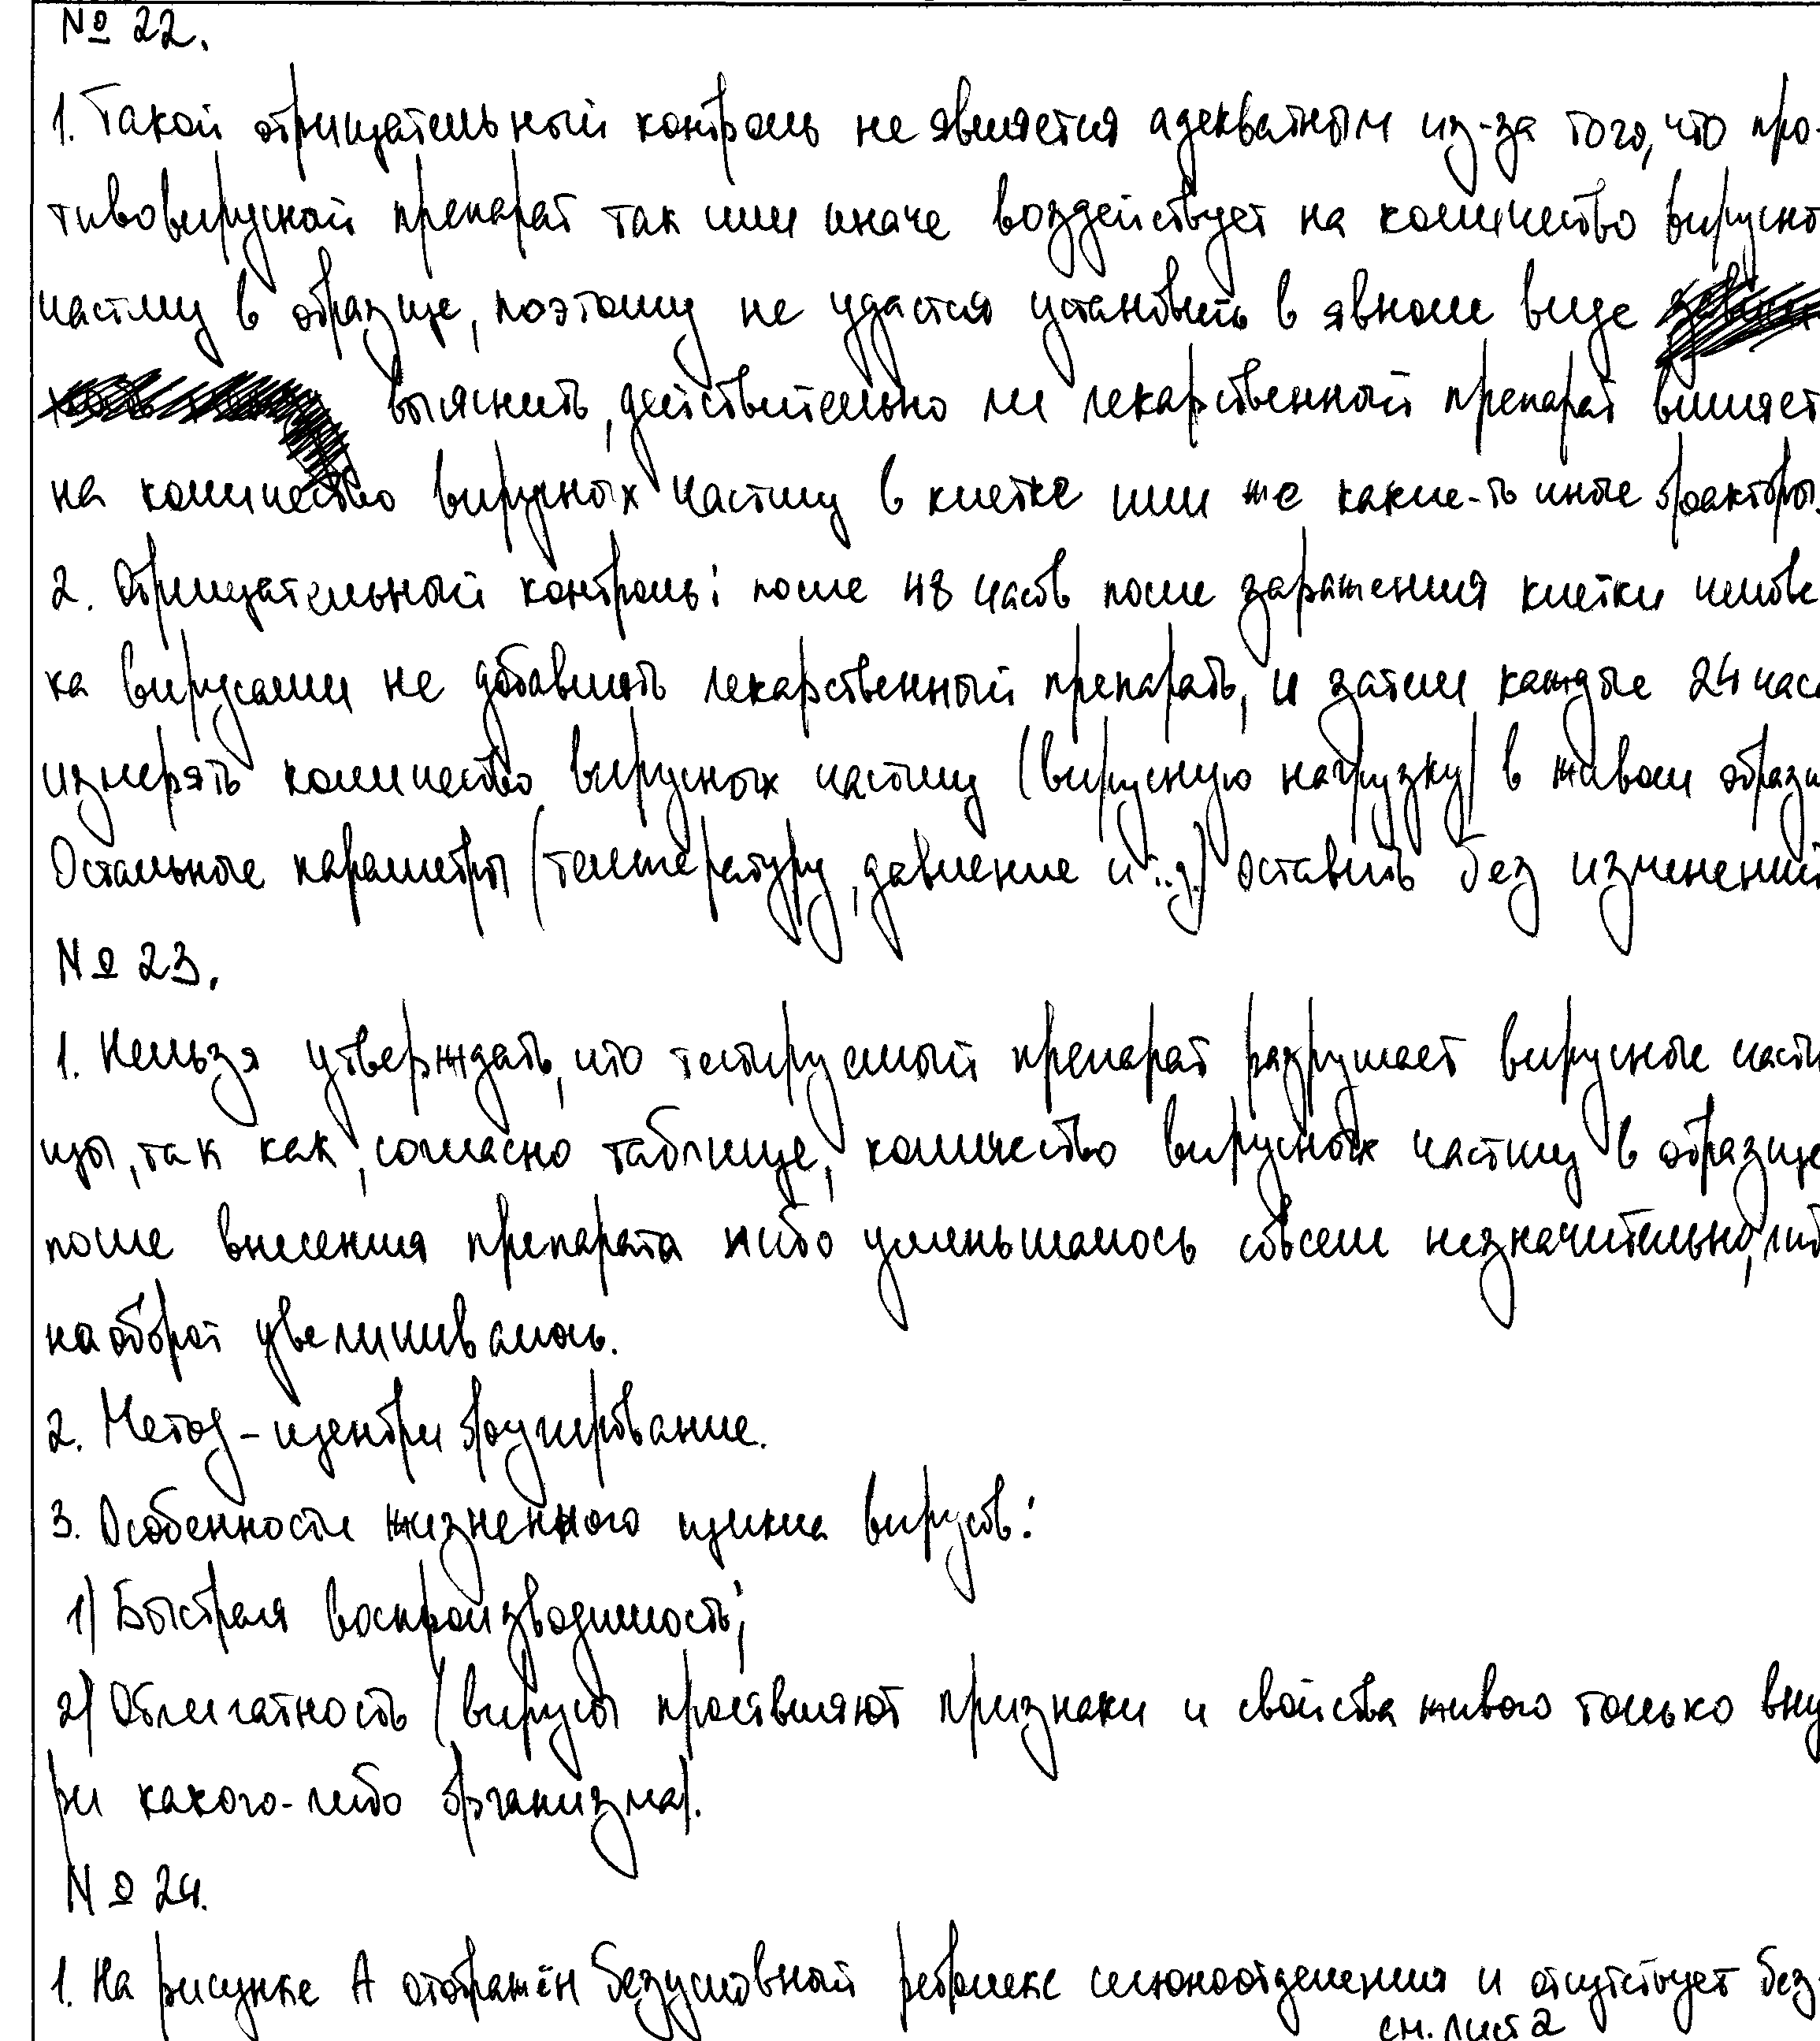 № 22.
1. Такой отрицательный контроль не является адекватным из-за того, что про-
тивовирусной препарат так или иначе воздействует на количество вирусн
частиц в образце, поэтому не удастся установить в явном виде
выяснить, действительно ли лекарственный препарат влияет
на количество вирусных частиц в клетке или же какие-то иные факторы.
2. Отрицательный контроль: после 48 часов после заражения клетки челове
ка вирусами не добавлять лекарственный препарать, и затем каждые 24 час
измерять количество вирусных частиц (вирусную нагрузку) в живом образц
Остальные параметры (температуру, давление и т.д.) оставить без изменений
№ 23.
1. Нельзя утверждать, что тестируемый препарат разрушает вирусные части
цы, так как, согласно таблице, количество вирусных частиц в образце
после внесения препарата либо уменьшалось совсем незначительно, либ
наоборот увеличивалось.
2. Метод – центрифугирование.
3. Особенности жизненного цикла вирусов:
1) Быстрая воспроизводимость;
2) Облигатность (вирусы проявляют признаки и свойства живого только вну
ри какого-либо организма).
№ 24.
1. На рисунке А отображён безусловный рефлекс слюноотделения и отсутствует без
см. лист 2